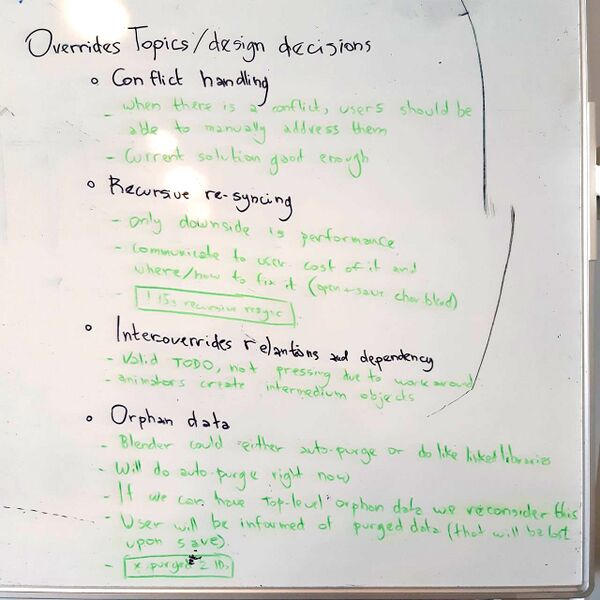 Overrides Topics/design decisions
o Conflict handling
- when there is a conflict, users should be
able to manually address them
- Current solution good enough
o Recursive re-syncing
- only downside is performance
- communicate to user cost of it and
where/how to fix it (open+save char.blend)
- ! 15s recursive resync
o Interoverrides relantions and dependency
- Valid TODO, not pressing due to work around
- animators create intermedium objects
o Orphan data
- Blender could either auto-purge or do like linked libraries
- Will do auto-purge right now
- If we can have "top-level" orphan data we reconsider this
- User will be informed of purged data (that will be lost
upon save).
- x purged 2 IDs